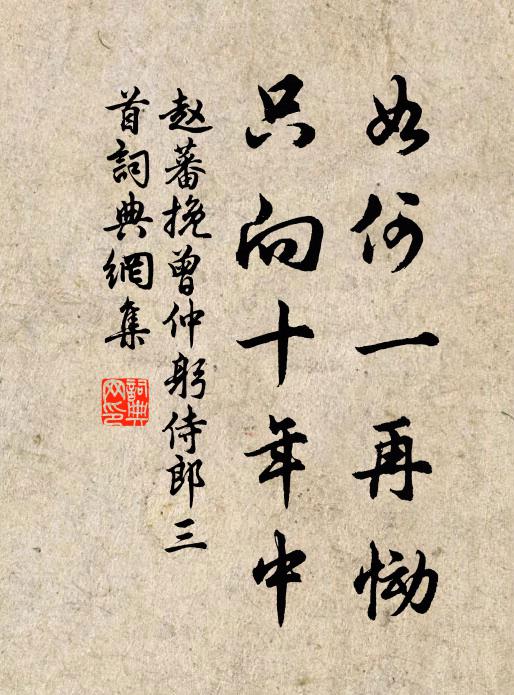 如何一再恸
只向十年中
赵蕃挽曾仲躬侍郎三
首詞典網集
詞典网印